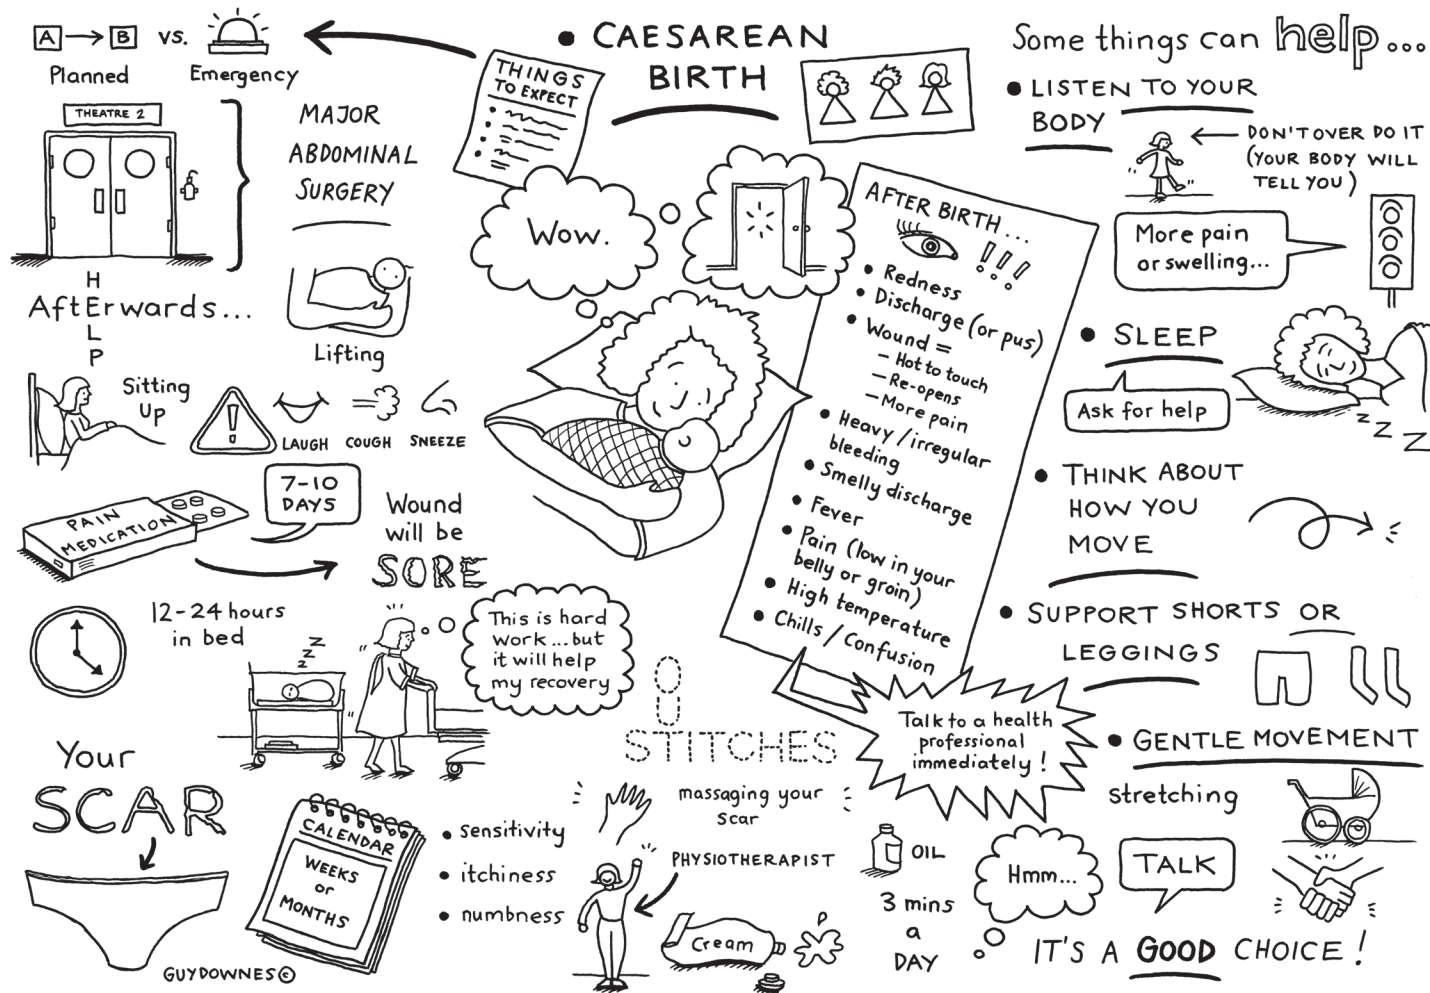 • CAESAREAN
BIRTH
A → B vs.
Planned
Emergency
THINGS
TO EXPECT
THEATRE 2
MAJOR
ABDOMINAL
SURGERY
Wow.
HELP
Afterwards...
Lifting
Sitting
Up
!
LAUGH
COUGH
SNEEZE
PAIN
MEDICATION
7-10
DAYS
Wound
will be
SORE
12-24 hours
in bed
z z Z
This is hard
work...but
it will help
my recovery
Your
SCAR
CALENDAR
WEEKS
or
MONTHS
GUYDOWNES©
• sensitivity
• itchiness
• numbness
STITCHES
massaging your
scar
PHYSIOTHERAPIST
Cream
OIL
3 mins
a
DAY
AFTER BIRTH...
!!!
• Redness
• Discharge (or pus)
• Wound =
– Hot to touch
– Re-opens
– More pain
• Heavy/irregular
bleeding
• Smelly discharge
• Fever
• Pain (low in your
belly or groin)
• High temperature
• Chills/Confusion
Talk to a health
professional
immediately!
Some things can help...
• LISTEN TO YOUR
BODY
DON'T OVER DO IT
(YOUR BODY WILL
TELL YOU)
More pain
or swelling...
• SLEEP
Ask for help
z Z Z
• THINK ABOUT
HOW YOU
MOVE
• SUPPORT SHORTS OR
LEGGINGS
• GENTLE MOVEMENT
stretching
Hmm...
TALK
IT'S A GOOD CHOICE!